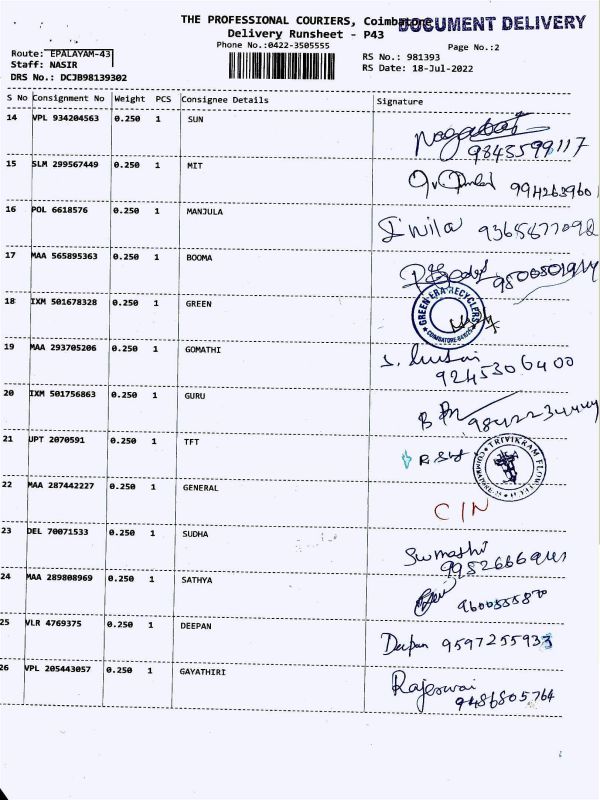 THE PROFESSIONAL COURIERS, Coimbatore
DOCUMENT DELIVERY
Delivery Runsheet - P43
Phone No.:0422-3505555
Page No.:2
Route: EPALAYAM-43
RS No.: 981393
Staff: NASIR
RS Date: 18-Jul-2022
DRS No.: DCJB98139302
S No Consignment No Weight PCS Consignee Details Signature
14 VPL 934204563 0.250 1 SUN
9843599117
15 SLM 299567449 0.250 1 MIT
16 POL 6618576 0.250 1 MANJULA
17 MAA 565895363 0.250 1 BOOMA
18 IXM 501678328 0.250 1 GREEN
GREEN ERA RECYCLERS
19 MAA 293705206 0.250 1 GOMATHI
9245306400
20 IXM 501756863 0.250 1 GURU
21 UPT 2070591 0.250 1 TFT
TRIVIKRAM FLOW
22 MAA 287442227 0.250 1 GENERAL
C/N
23 DEL 70071533 0.250 1 SUDHA
Sumathi
24 MAA 289808969 0.250 1 SATHYA
25 VLR 4769375 0.250 1 DEEPAN
Deepan 9597255933
26 VPL 205443057 0.250 1 GAYATHIRI
Rajeswari
9486805764